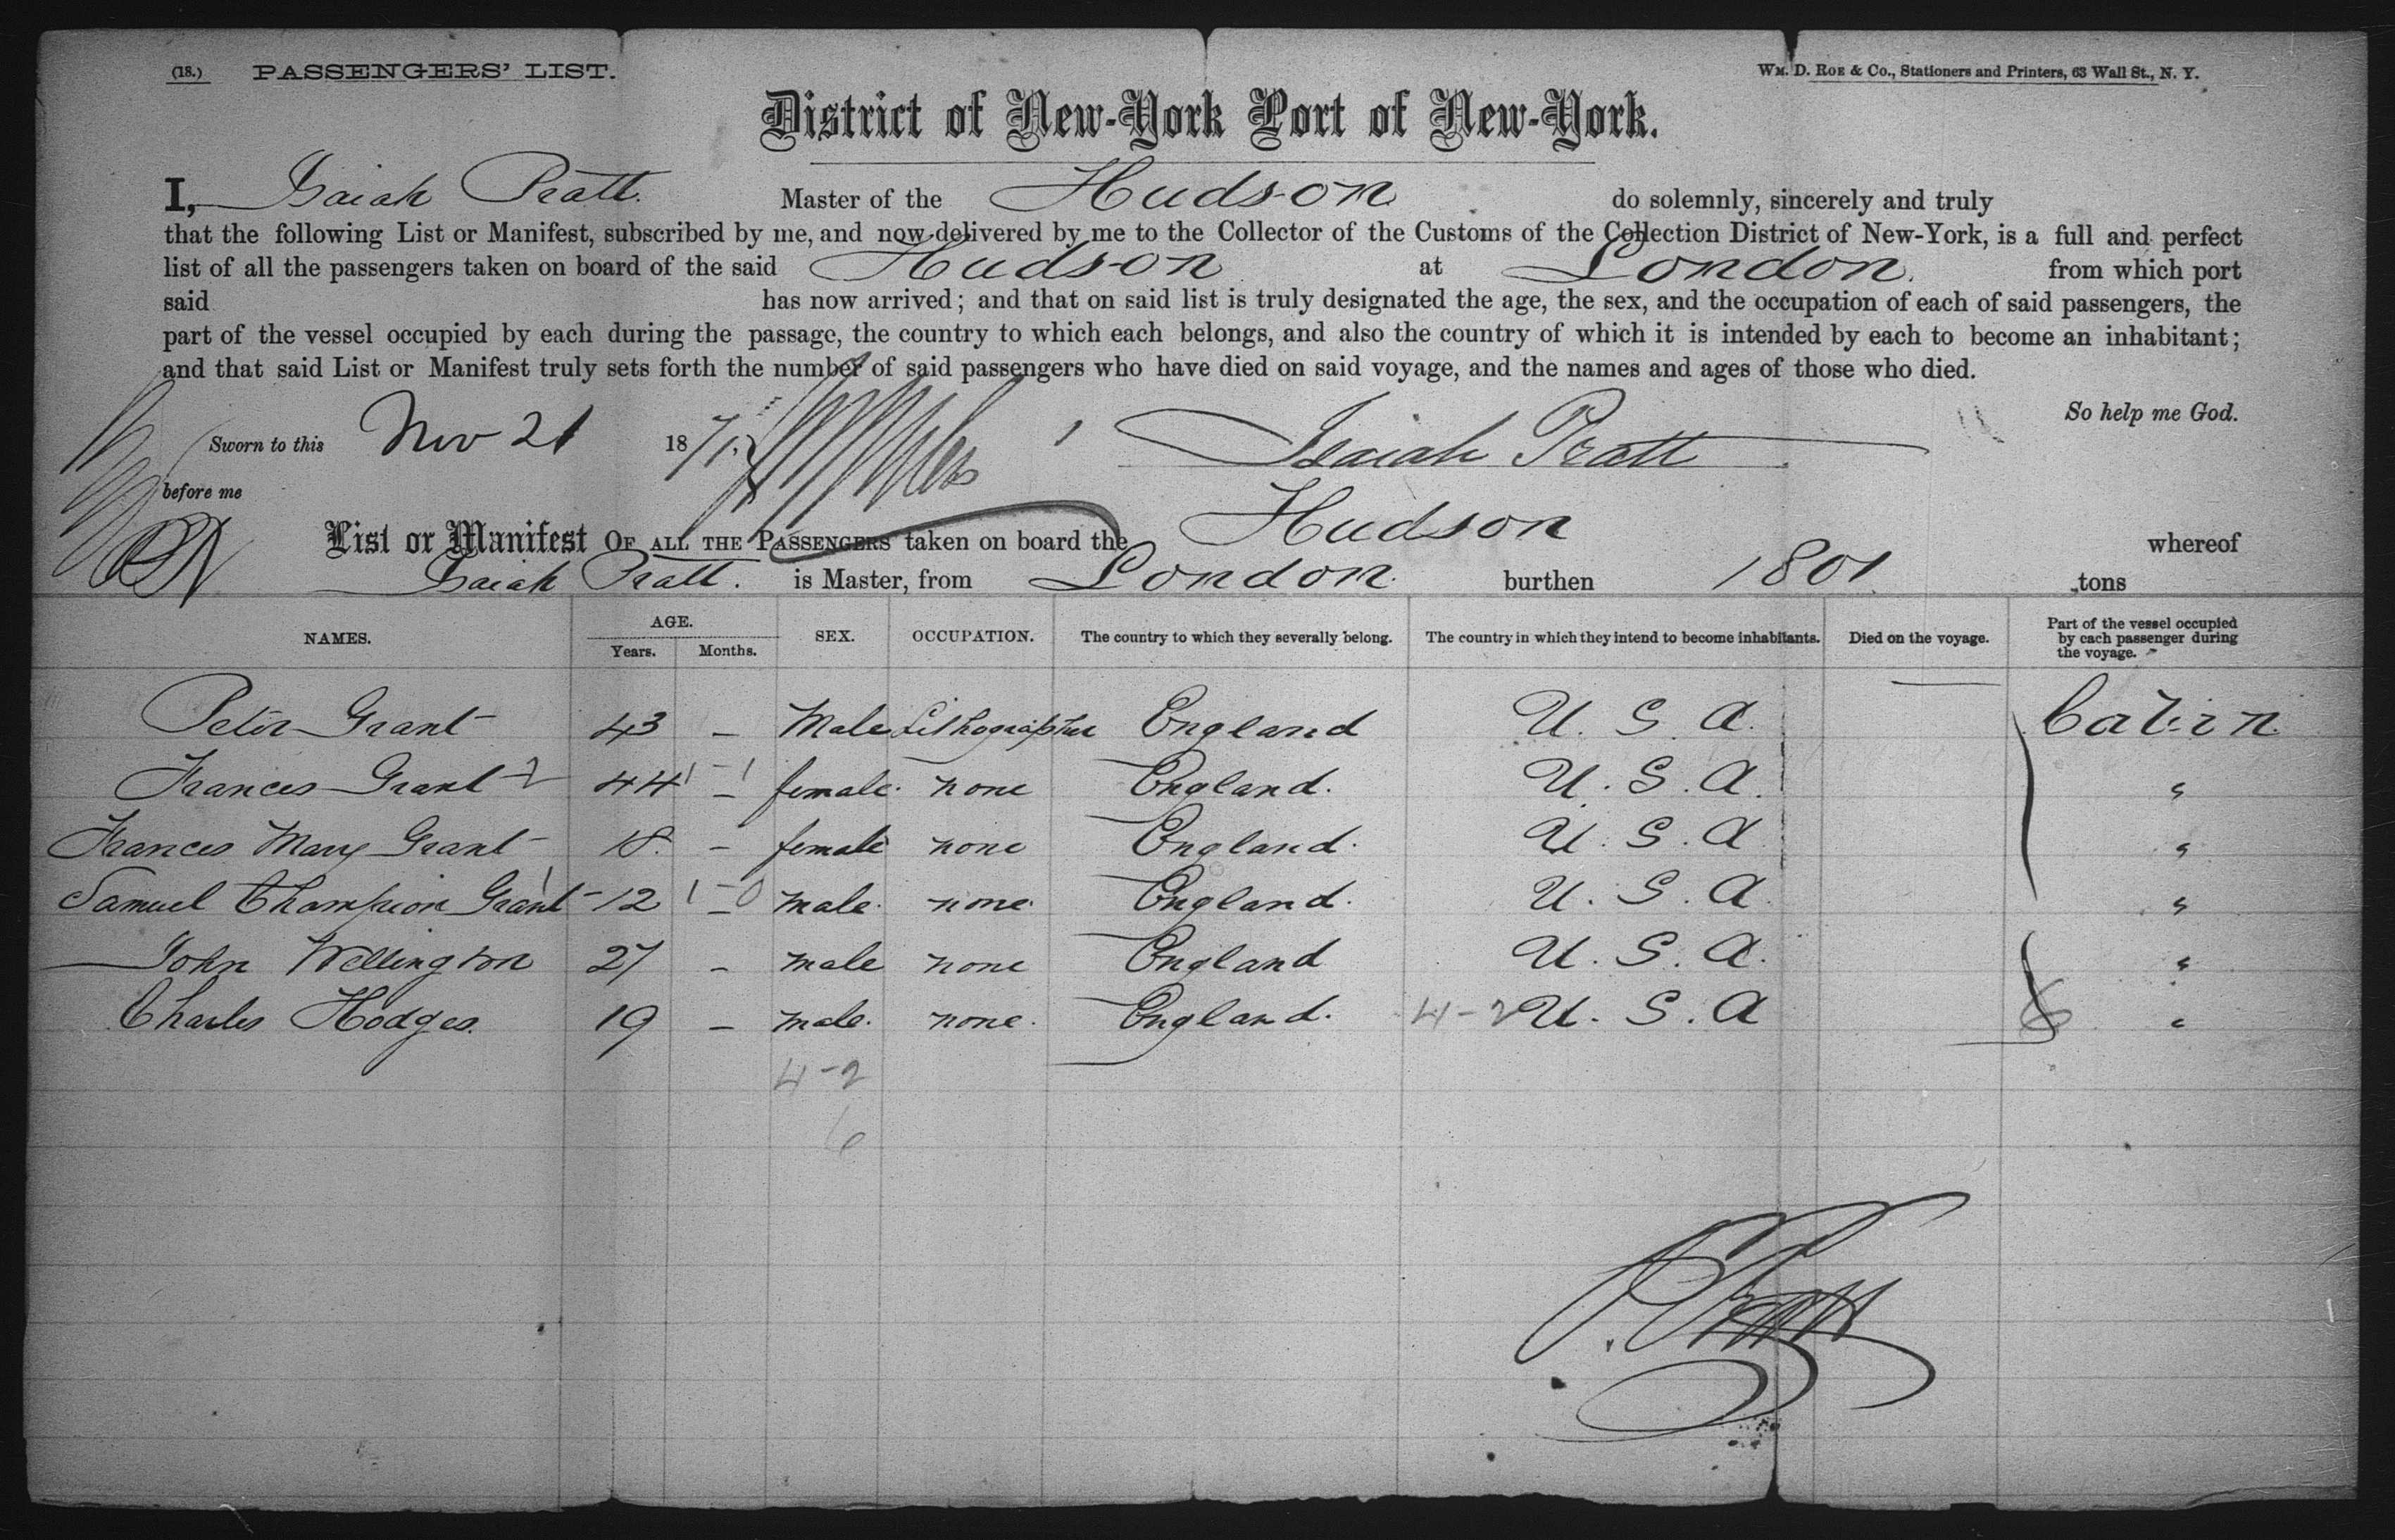 (18.) PASSENGERS' LIST.
WM. D. ROE & CO., Stationers and Printers, 63 Wall St., N. Y.
District of New-York Port of New-York.
I, Isaiah Pratt. Master of the Hudson do solemnly, sincerely and truly
that the following List or Manifest, subscribed by me, and now delivered by me to the Collector of the Customs of the Collection District of New-York, is a full and perfect
list of all the passengers taken on board of the said Hudson at London. from which port
said has now arrived; and that on said list is truly designated the age, the sex, and the occupation of each of said passengers, the
part of the vessel occupied by each during the passage, the country to which each belongs, and also the country of which it is intended by each to become an inhabitant;
and that said List or Manifest truly sets forth the number of said passengers who have died on said voyage, and the names and ages of those who died.
So help me God.
Sworn to this Nov 21 1871. Isaiah Pratt
before me
List or Manifest OF ALL THE PASSENGERS taken on board the Hudson whereof
Isaiah Pratt. is Master, from London. burthen 1801 tons
NAMES. AGE. Years. Months. SEX. OCCUPATION. The country to which they severally belong. The country in which they intend to become inhabitants. Died on the voyage. Part of the vessel occupied by each passenger during the voyage.
Peter Grant 43 – Male Lithographer England U. S. A. Cabin
Frances Grant 44 – female. none England. U. S. A. "
Frances Mary Grant 18. – female none England. U. S. A "
Samuel Champion Grant 12 – male. none. England. U. S. A. "
John Wellington 27 – male none England U. S. A. "
Charles Hodges. 19 – male. none. England. 4-2 U. S. A "
4-2
6